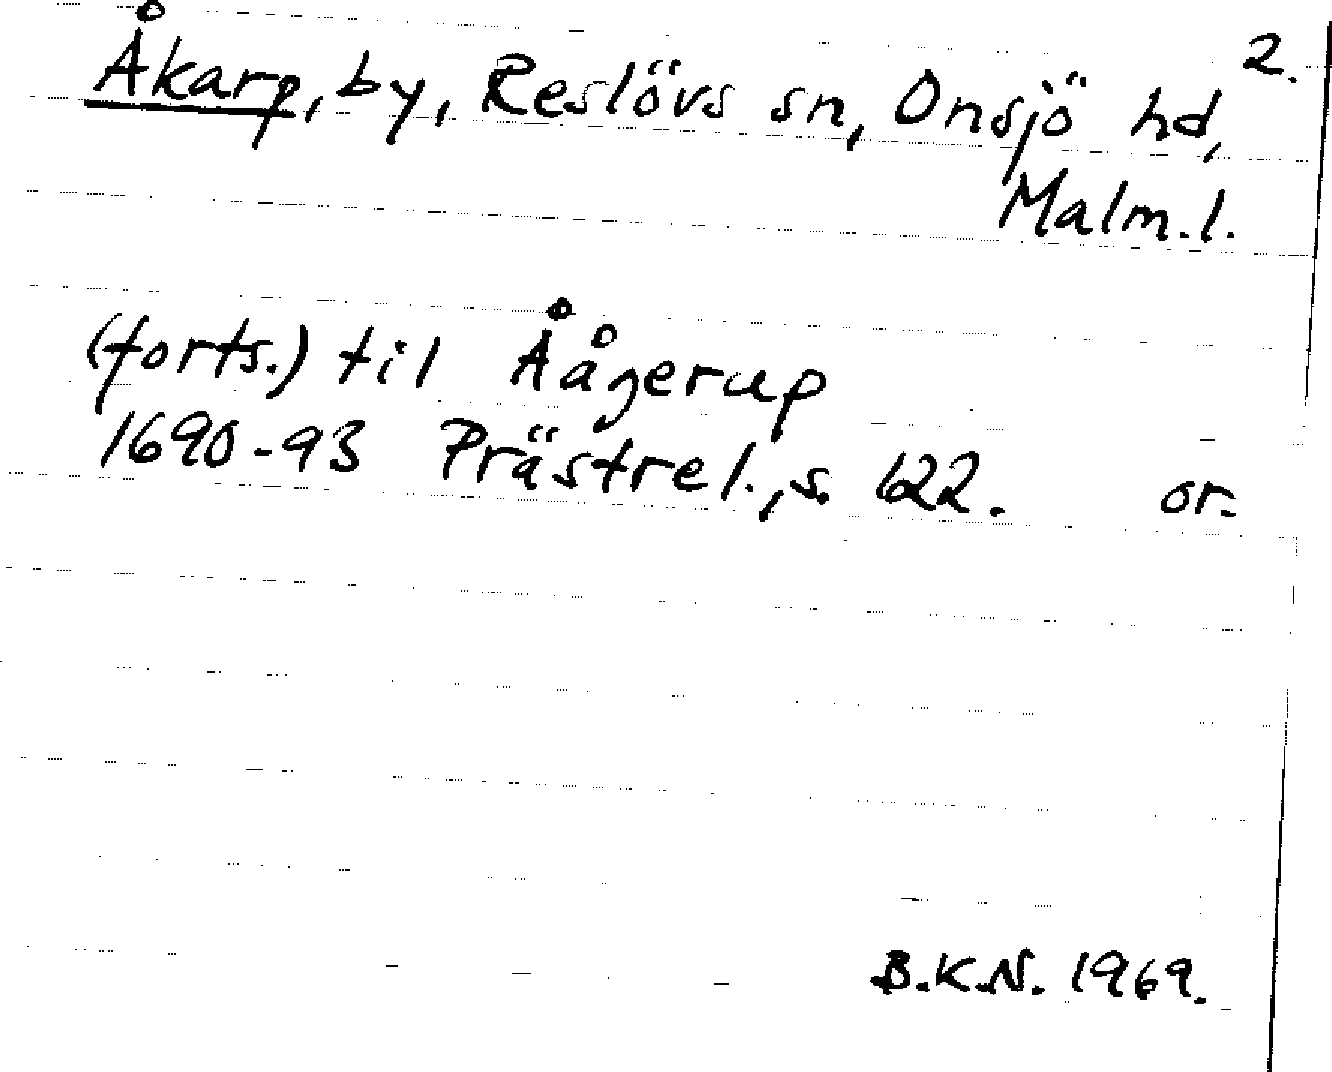 2.
Åkarp, by, Reslövs sn, Onsjö hd,
Malm.l.
(forts.) til Åågerup
1690-93 Prästrel., s. 622. or.
B.K.N. 1969.